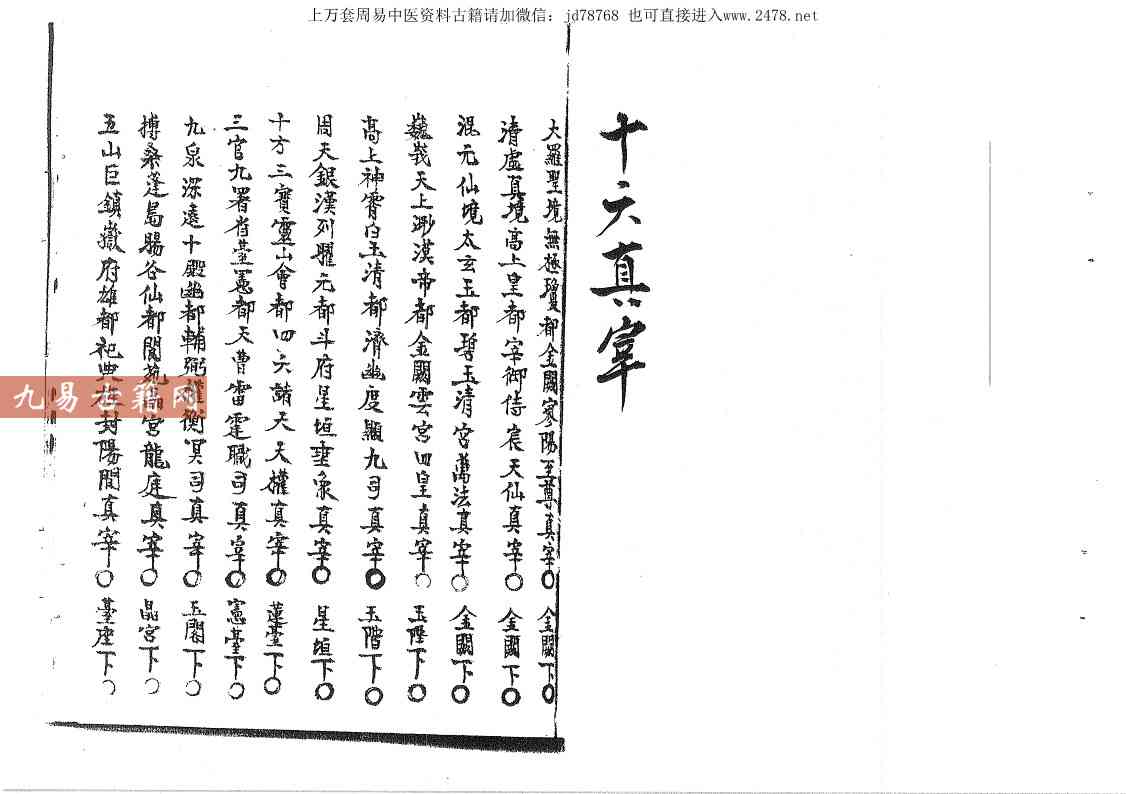 上万套周易中医资料古籍请加微信：jd78768 也可直接进入www.2478.net
十六真宰
大羅聖境無極瓊都金闕寥陽至尊真宰〇 金闕下〇
清虛真境高上皇都宰御侍宸天仙真宰〇 金闕下〇
混元仙境太玄玉都碧玉清宮萬法真宰〇 金闕下〇
巍峩天上渺漠帝都金闕雲宮四皇真宰〇 玉陛下〇
高上神霄白玉清都濟幽度顯九司真宰〇 玉階下〇
周天銀漢列曜元都斗府星垣垂象真宰〇 星垣下〇
十方三寶靈山會都四六諸天天權真宰〇 蓮臺下〇
三官九署省臺憲都天曹雷霆職司真宰〇 憲臺下〇
九泉深遠十殿幽都輔弼權衡冥司真宰〇 玉閣下〇
搏桑蓬島腸谷仙都閬苑晶宮龍庭真宰〇 晶宮下〇
五山巨鎮嶽府雄都祀典 封陽間真宰〇 臺座下〇
九易古籍网